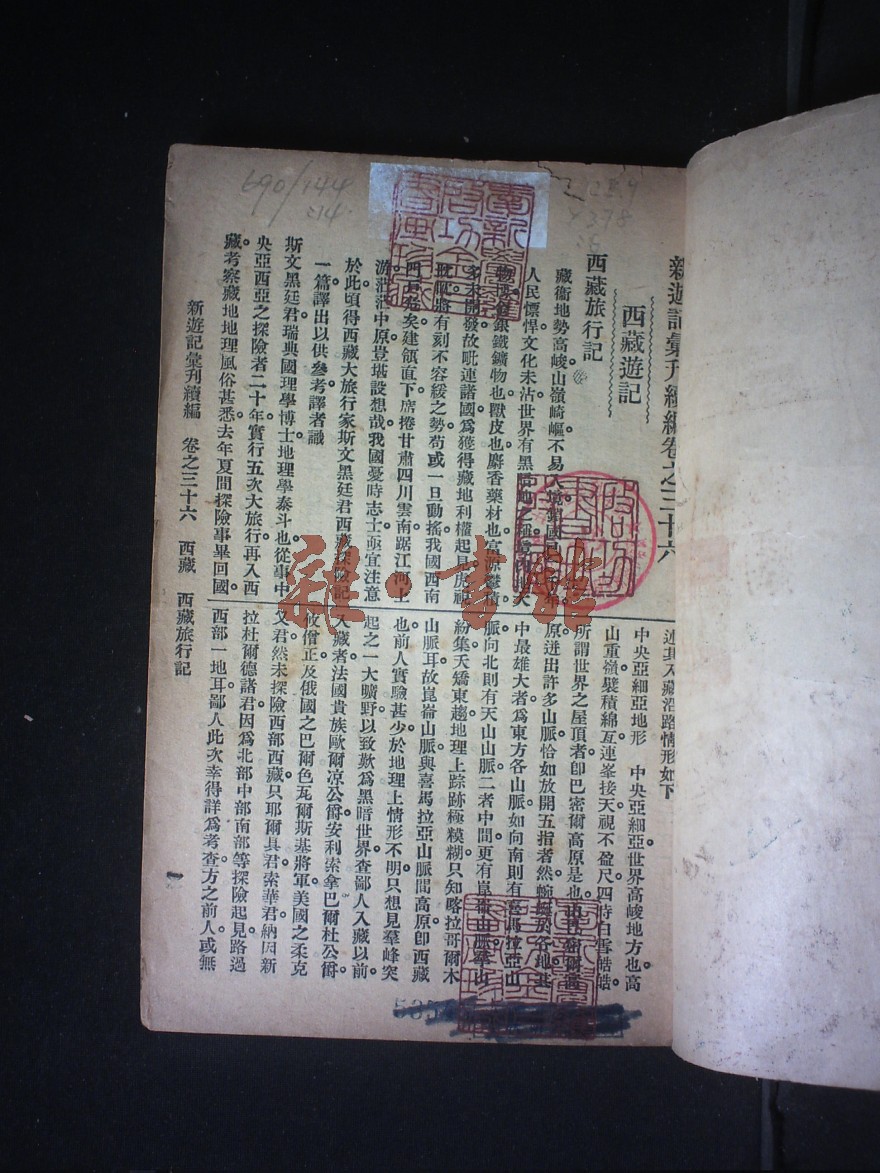 新遊記彙刊續編卷之三十六
西藏遊記
西藏旅行記
藏衛地勢高峻山嶺崎嶇不易
人民慓悍文化未沾世界有黑
銀鐵鑛物也獸皮也麝香藥材也富源
多未開發故毗連諸國爲獲得藏地利權起
眈眈將有刻不容綏之勢苟或一旦動搖我國西南
矣建領直下席捲甘肅四川雲南踞江河上
游茫茫中原豈堪設想哉我國憂時志士亟宜注意
於此頃得西藏大旅行家斯文黑廷君西藏探險記
一篇譯出以供參考譯者識
斯文黑廷君瑞典國理學博士地理學泰斗也從事中
央亞西亞之探險者二十年實行五次大旅行再入西
藏考察藏地地理風俗甚悉去年夏間探險事畢回國
述其入藏沿路情形如下
中央亞細亞地形 中央亞細亞世界高峻地方也高
山重嶺襞積綿亙連峯接天視不盈尺四時白雪皓皓
所謂世界之屋頂者卽巴密爾高原是也
原迸出許多山脈恰如放開五指者然蜿蜒於各地其
中最雄大者爲東方各山脈如向南則有喜馬拉亞山
脈向北則有天山山脈二者中間更有崑崙山脈羣山
紛集天矯東趨地理上踪跡極糢糊只知喀拉哥爾木
山脈耳故崑崙山脈與喜馬拉亞山脈間高原卽西藏
也前人實驗甚少於地理上情形不明只想見羣峰突
起之一大曠野以致歎爲黑暗世界查鄙人入藏以前
入藏者法國貴族歐爾凉公爵安利索拿巴爾杜公爵
佊僧正及俄國之巴爾色瓦爾斯基將軍美國之柔克
又君然未探險西部西藏只耶爾具君索華君納因新
拉杜爾德諸君因爲北部中部南部等探險起見路過
西部一地耳鄙人此次幸得詳爲考查方之前人或無
新遊記彙刊續編 卷之三十六 西藏 西藏旅行記
690/144
214
雜·書館